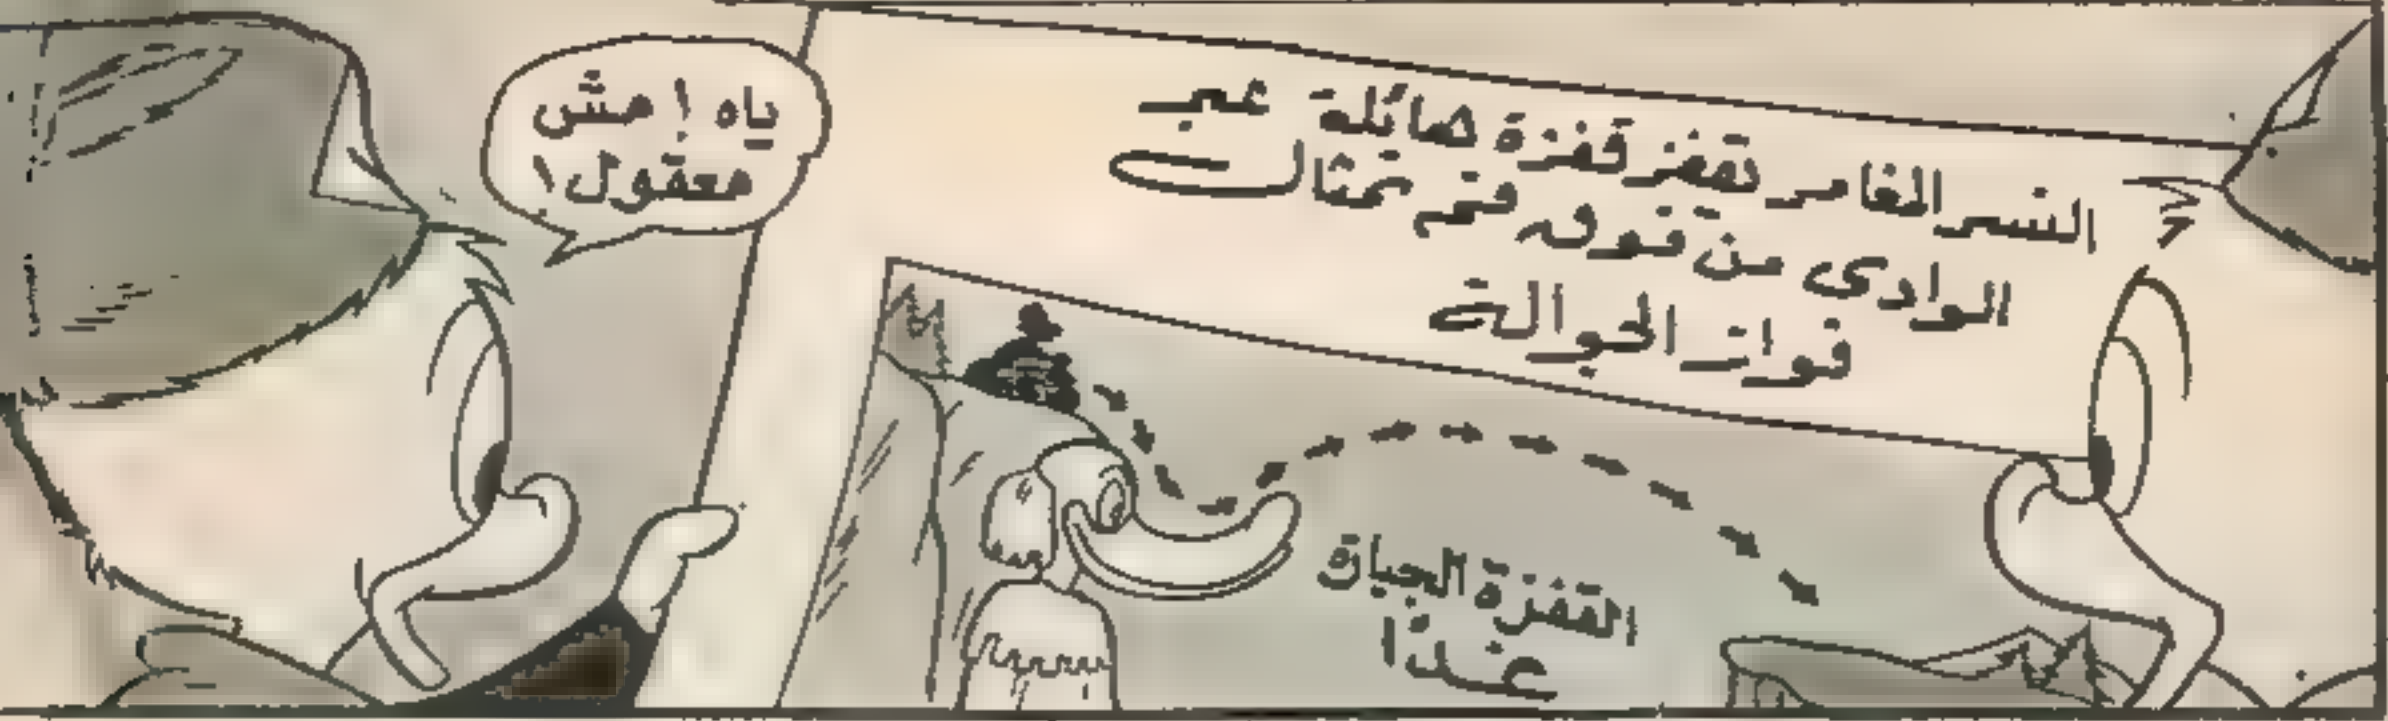 ياه ! مش
معقول !
النسر المغامر تقفز قفزة هائلة عبر
الوادى من فوق فم تمثال
فواز الجوالة
القفزة الجبارة
غدًا